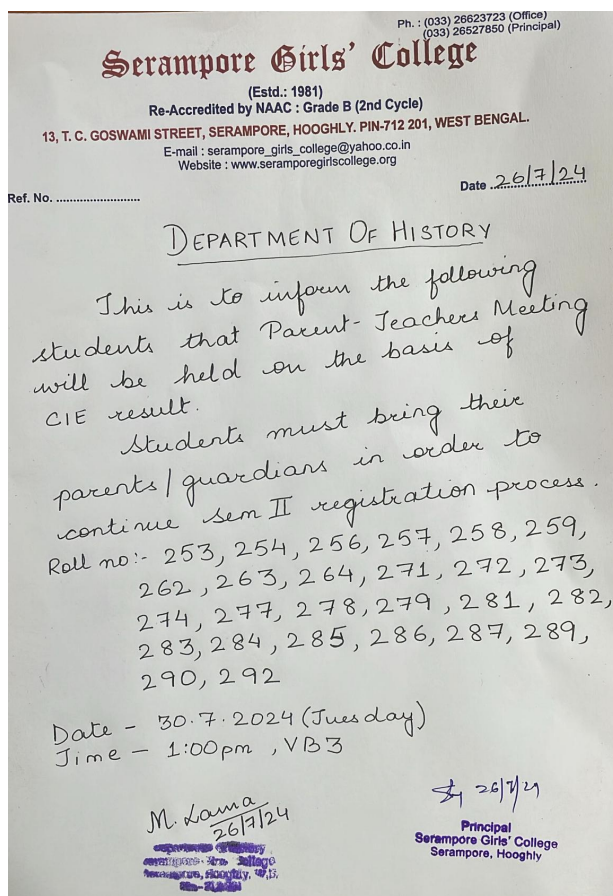 Ph. : (033) 26623723 (Office)
(033) 26527850 (Principal)
Serampore Girls' College
(Estd.: 1981)
Re-Accredited by NAAC : Grade B (2nd Cycle)
13, T. C. GOSWAMI STREET, SERAMPORE, HOOGHLY. PIN-712 201, WEST BENGAL.
E-mail : serampore_girls_college@yahoo.co.in
Website : www.seramporegirlscollege.org
Ref. No. ..........................
Date 26/7/24
DEPARTMENT OF HISTORY
This is to inform the following
students that Parent-Teachers Meeting
will be held on the basis of
CIE result.
Students must bring their
parents/guardians in order to
continue sem II registration process.
Roll no:- 253, 254, 256, 257, 258, 259,
262, 263, 264, 271, 272, 273,
274, 277, 278, 279, 281, 282,
283, 284, 285, 286, 287, 289,
290, 292
Date - 30.7.2024 (Tuesday)
Time - 1:00pm, VB3
M. Lama
26/7/24
26/7/24
Principal
Serampore Girls' College
Serampore, Hooghly